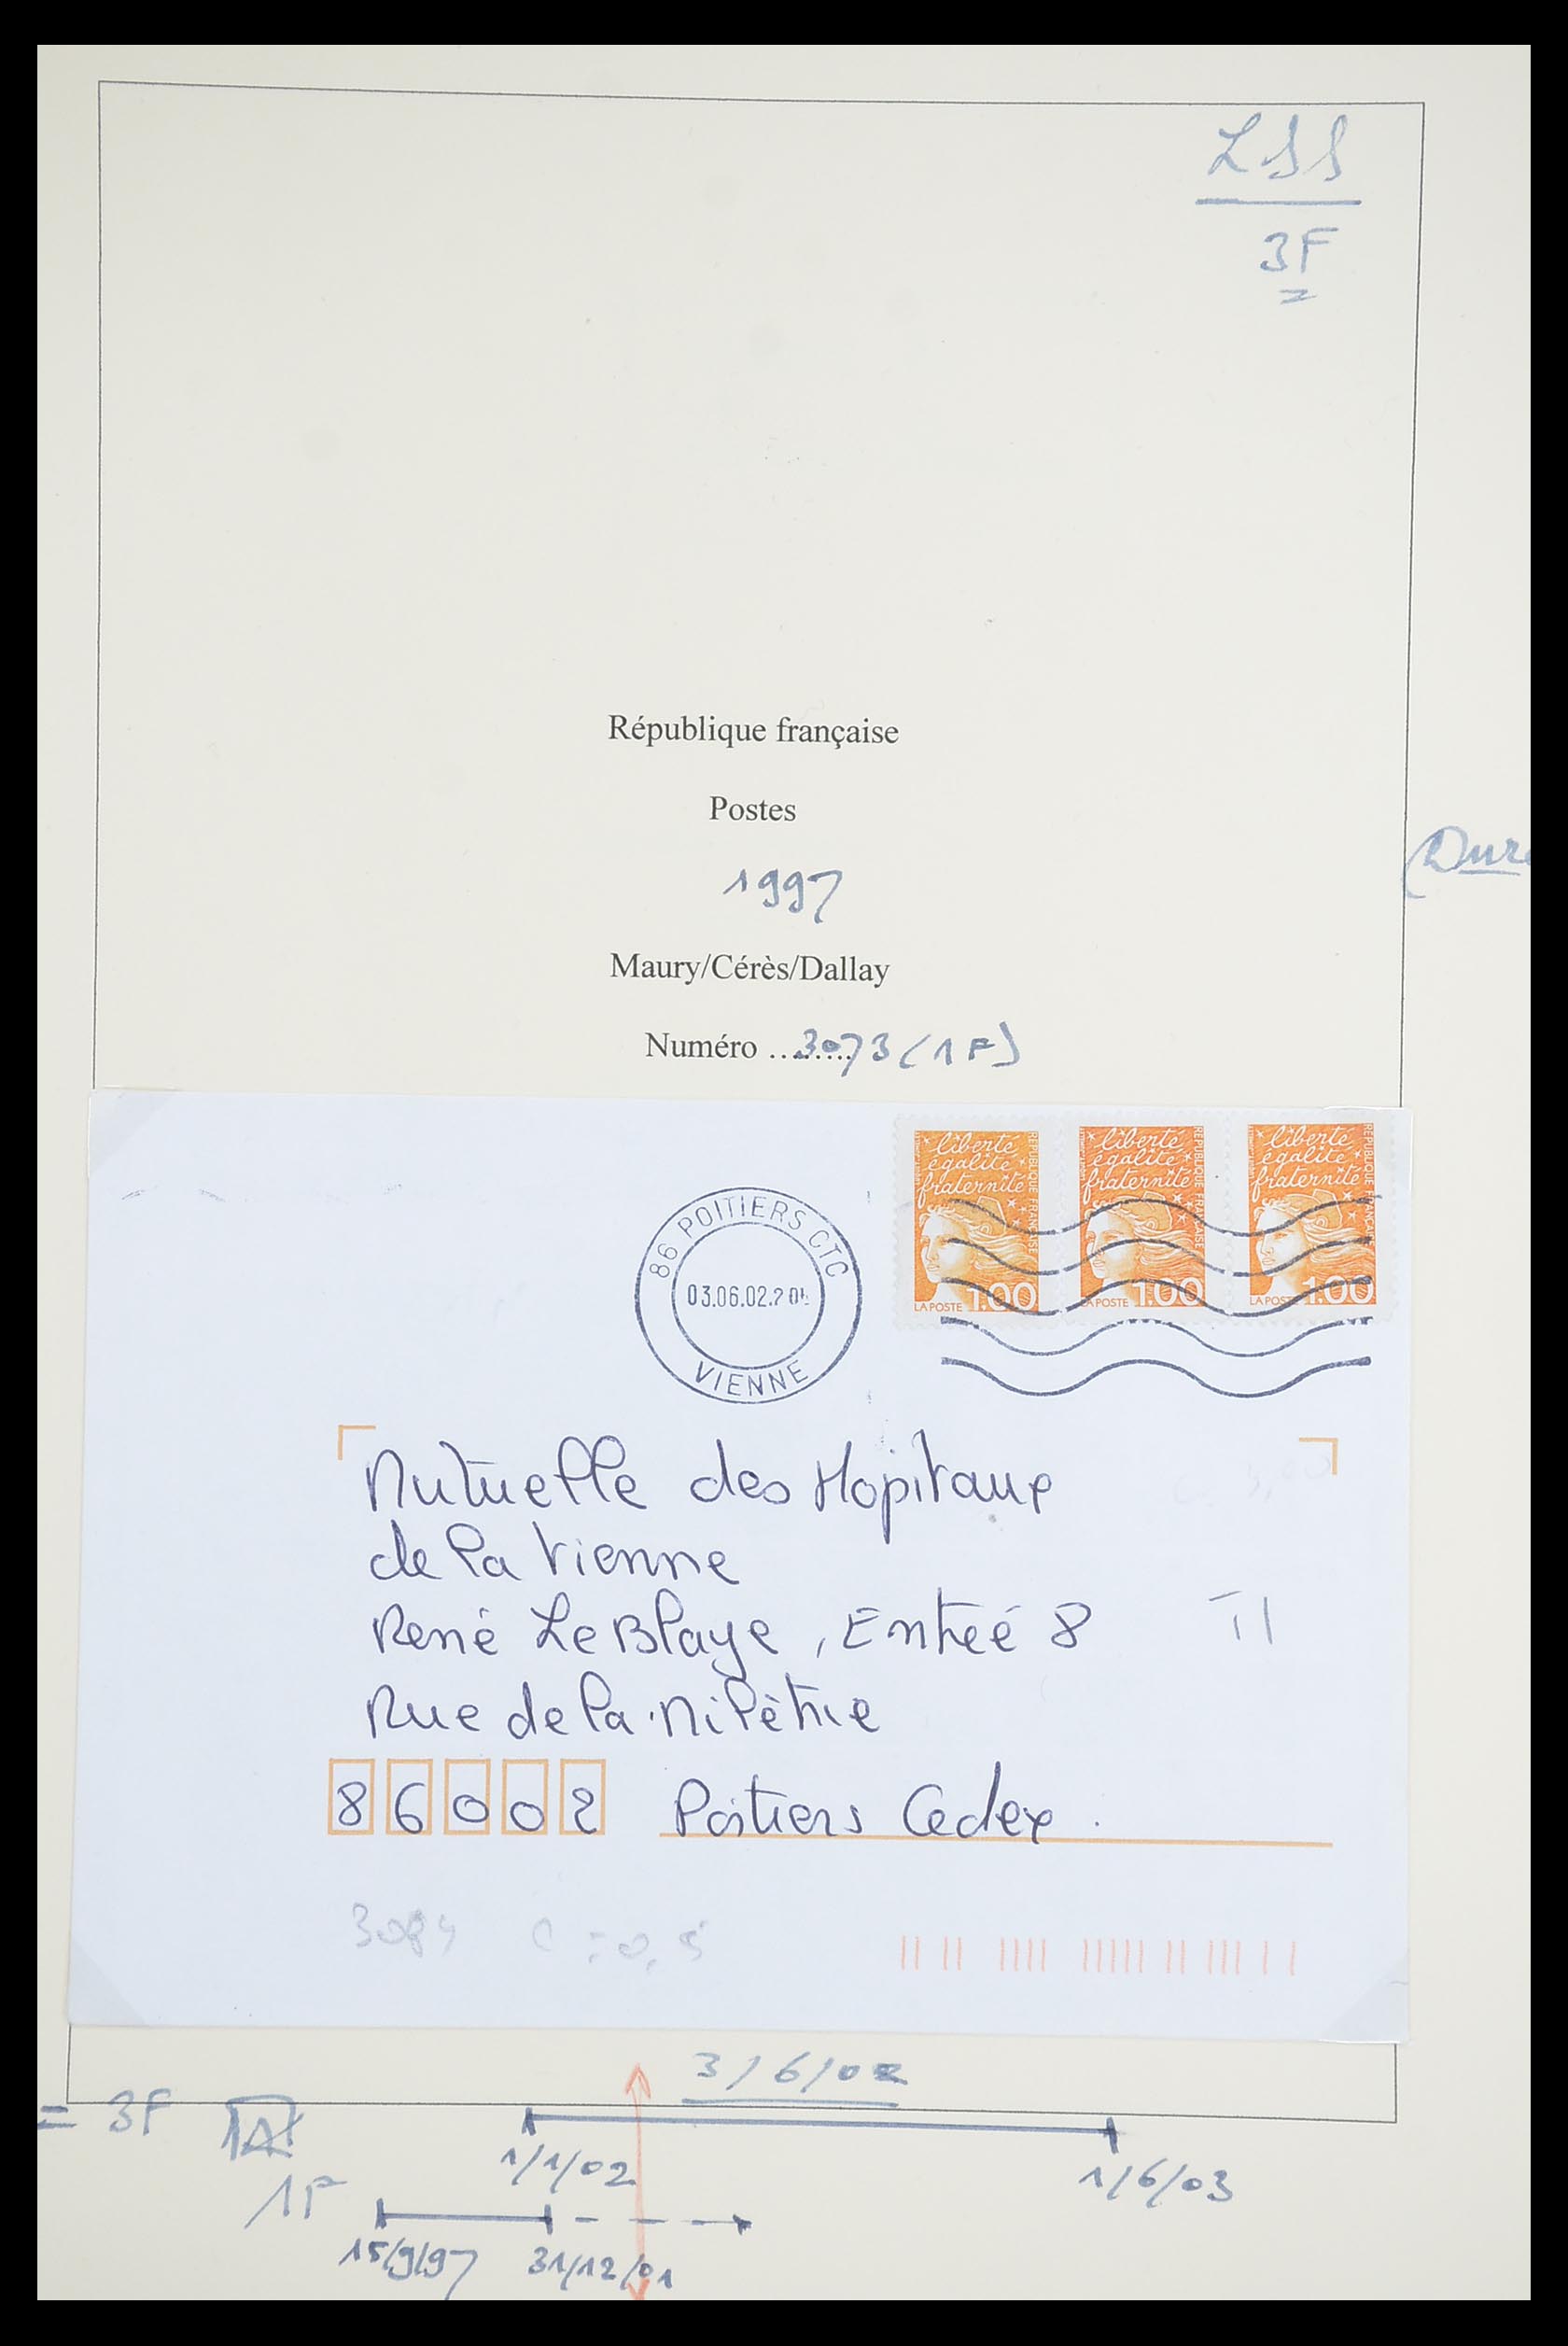 LSS
3F
République française
Postes
1997
Maury/Cérès/Dallay
Numéro ......... 3073 (1F)
liberté
égalité
fraternité
RÉPUBLIQUE FRANÇAISE
LA POSTE 1.00
liberté
égalité
fraternité
RÉPUBLIQUE FRANÇAISE
LA POSTE 1.00
liberté
égalité
fraternité
RÉPUBLIQUE FRANÇAISE
LA POSTE 1.00
86 POITIERS CTC
03.06.02
VIENNE
Mutuelle des Hopitaux
de la Vienne
René Le Blaye, Entrée 8
Rue de la Milètrie
86002 Poitiers Cedex.
3084 C = 0,5
3/6/02
= 3F
1/1/02
1/6/03
1F
15/9/97
31/12/01